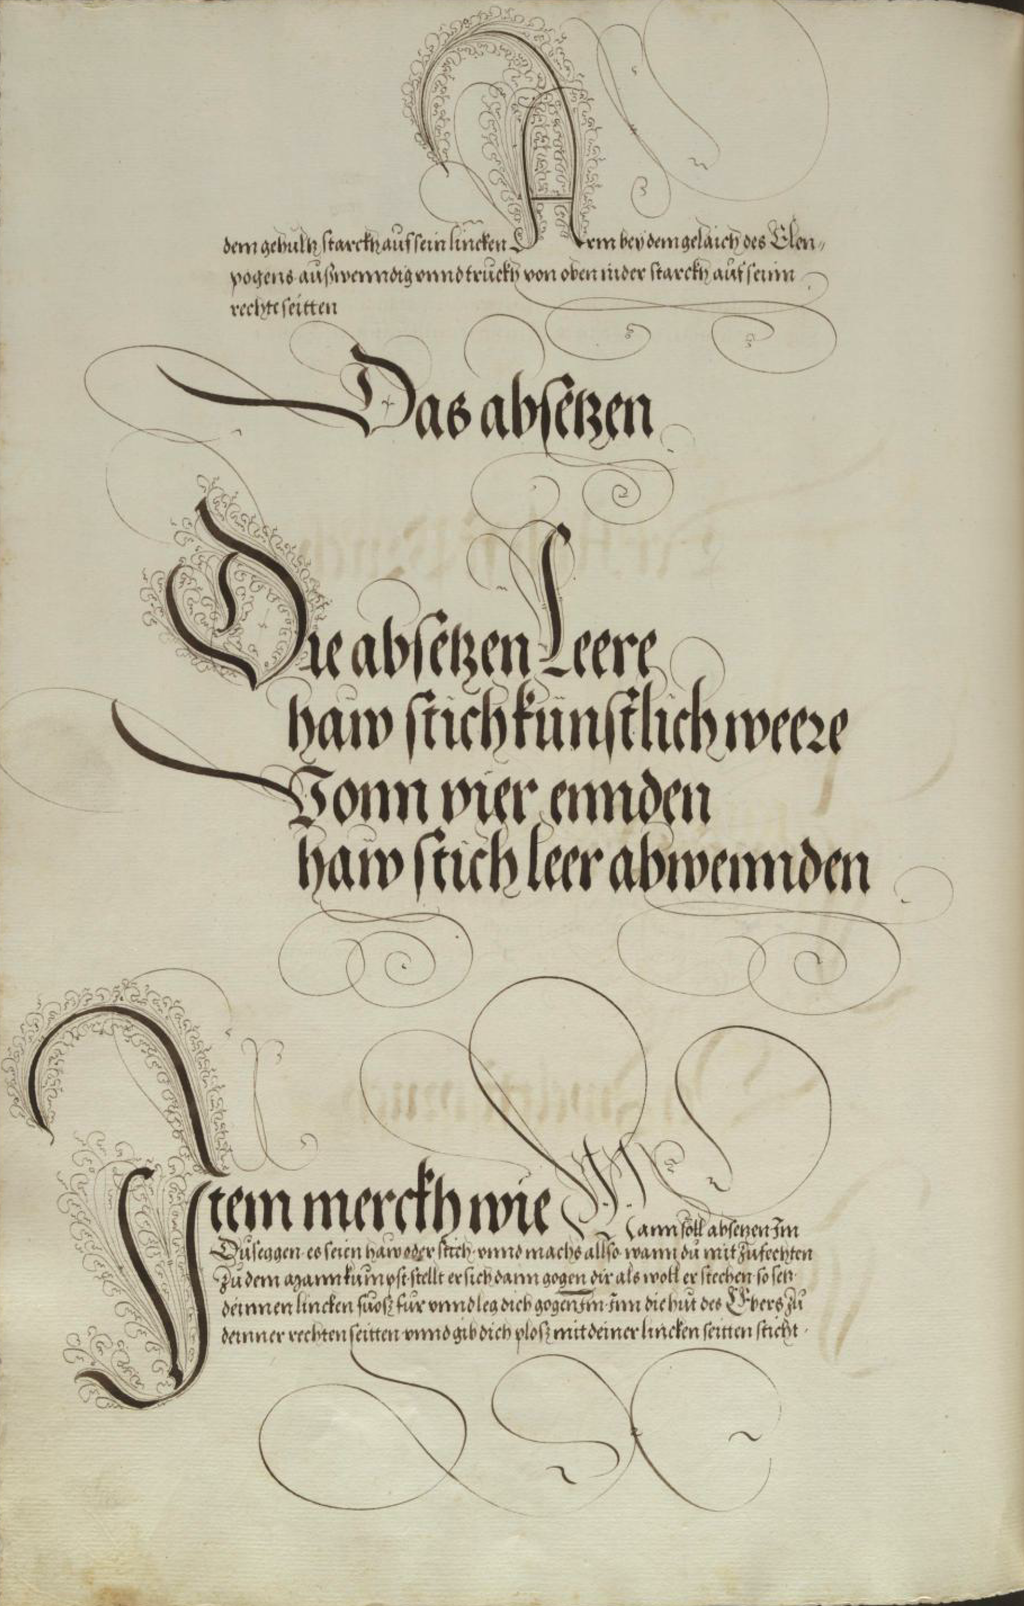 dem gehultz starckh auf sein lincken Arm bey dem gelaich des Elen„
pogens außwenndig vnnd truckh von oben nider starckh auf seinn
rechte seitten
Das absetzen
Die absetzen Leere
haw stich künstlich weere
Vonn vier ennden
haw stich leer abwennden
Item merckh wie
Man soll absetzen Im
Duseggen es seien haw oder stich vnnd machs allso wann du mit zufechten
Zu dem Mann kumpst stellt er sich dann gogen dir als woll er stechen so setz
deinnen lincken fuosz fur vnnd leg dich gogen Im Inn die hut des Ebers zu
deinner rechten seitten vnnd gib dich plosz mit deiner lincken seitten sticht